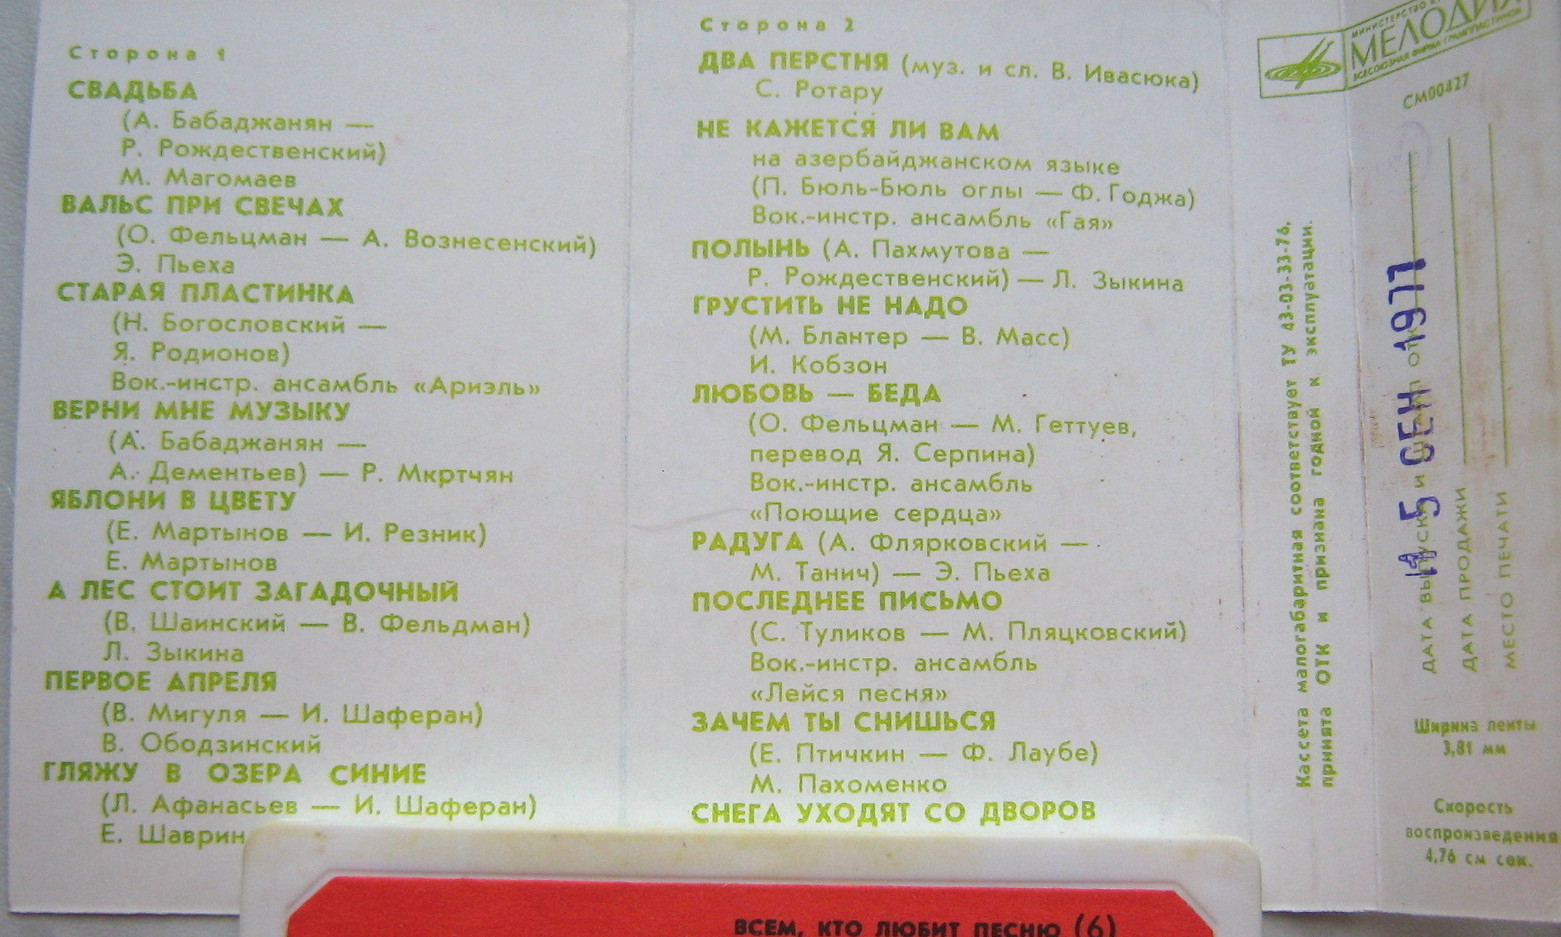 Сторона 1
СВАДЬБА
(А. Бабаджанян —
Р. Рождественский)
М. Магомаев
ВАЛЬС ПРИ СВЕЧАХ
(О. Фельцман — А. Вознесенский)
Э. Пьеха
СТАРАЯ ПЛАСТИНКА
(Н. Богословский —
Я. Родионов)
Вок.-инстр. ансамбль «Ариэль»
ВЕРНИ МНЕ МУЗЫКУ
(А. Бабаджанян —
А. Дементьев) — Р. Мкртчян
ЯБЛОНИ В ЦВЕТУ
(Е. Мартынов — И. Резник)
Е. Мартынов
А ЛЕС СТОИТ ЗАГАДОЧНЫЙ
(В. Шаинский — В. Фельдман)
Л. Зыкина
ПЕРВОЕ АПРЕЛЯ
(В. Мигуля — И. Шаферан)
В. Ободзинский
ГЛЯЖУ В ОЗЕРА СИНИЕ
(Л. Афанасьев — И. Шаферан)
Е. Шаврин
Сторона 2
ДВА ПЕРСТНЯ (муз. и сл. В. Ивасюка)
С. Ротару
НЕ КАЖЕТСЯ ЛИ ВАМ
на азербайджанском языке
(П. Бюль-Бюль оглы — Ф. Годжа)
Вок.-инстр. ансамбль «Гая»
ПОЛЫНЬ (А. Пахмутова —
Р. Рождественский) — Л. Зыкина
ГРУСТИТЬ НЕ НАДО
(М. Блантер — В. Масс)
И. Кобзон
ЛЮБОВЬ — БЕДА
(О. Фельцман — М. Геттуев,
перевод Я. Серпина)
Вок.-инстр. ансамбль
«Поющие сердца»
РАДУГА (А. Флярковский —
М. Танич) — Э. Пьеха
ПОСЛЕДНЕЕ ПИСЬМО
(С. Туликов — М. Пляцковский)
Вок.-инстр. ансамбль
«Лейся песня»
ЗАЧЕМ ТЫ СНИШЬСЯ
(Е. Птичкин — Ф. Лаубе)
М. Пахоменко
СНЕГА УХОДЯТ СО ДВОРОВ
Кассета малогабаритная соответствует ТУ 43-03-33-76,
принята ОТК и признана годной к эксплуатации.
МИНИСТЕРСТВО
МЕЛОДИЯ
ВСЕСОЮЗНАЯ ФИРМА ГРАМПЛАСТИНОК
СМ00427
ДАТА ВЫПУСКА И ШТАМП ОТК
5 СЕН 1977
ДАТА ПРОДАЖИ
МЕСТО ПЕЧАТИ
Ширина ленты
3,81 мм
Скорость
воспроизведения
4,76 см сек.
ВСЕМ, КТО ЛЮБИТ ПЕСНЮ (6)